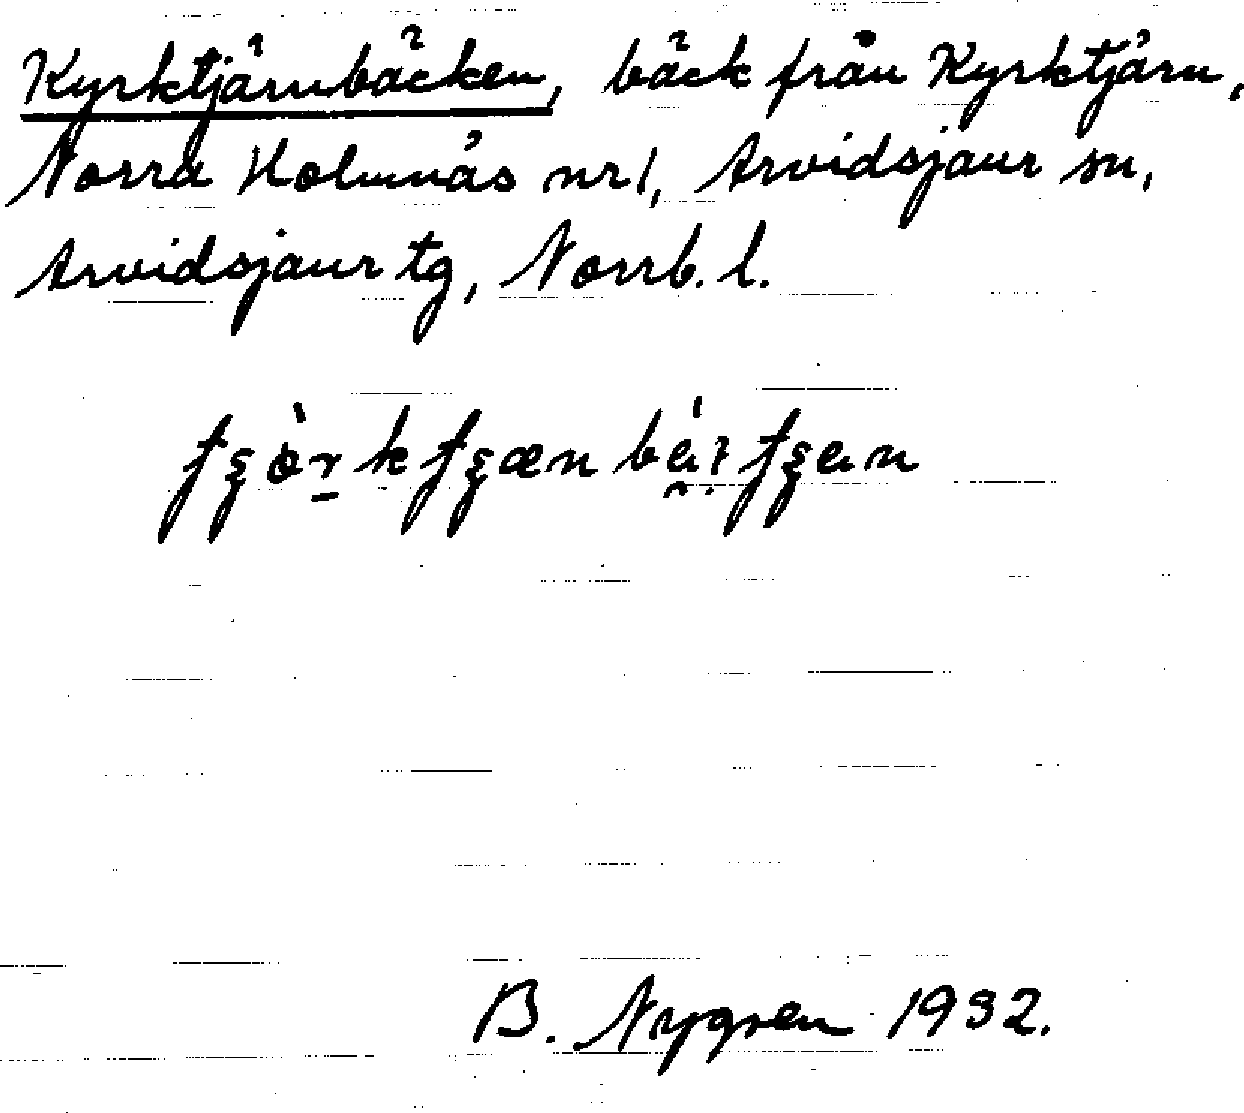 Kyrktjärnbäcken, bäck från Kyrktjärn,
Norra Holmnäs nr 1, Arvidsjaur sn,
Arvidsjaur tg, Norrb. l.
B. Nygren 1932.